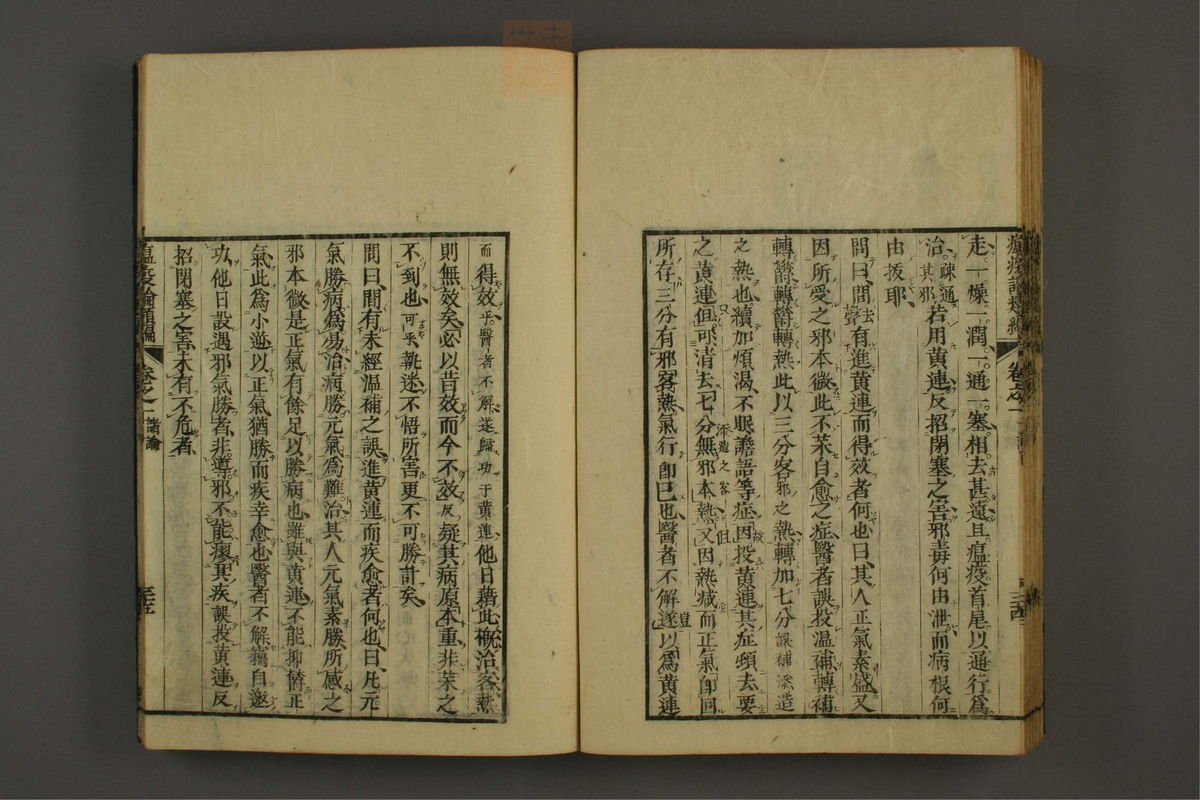 瘟疫論類編 卷之一 諸論 三四
走、一燥一潤、一通一塞、相去甚遠、且瘟疫首尾以通行爲
治、疎通其邪若用黃連、反招閉塞之害、邪毒何由泄、而病根何
由拔耶、
問曰、間有進黃連而得效者何也、曰、其人正氣素盛、又
因所受之邪本微、此不藥自愈之症、醫者誤投溫補、轉補
轉鬱、轉鬱轉熱、此以三分客邪之熱、轉加七分誤補添造
之熱也、續加煩渴、不眠譫語等症、因投黃連、其症頓去、要
之黃連但可清去七分無邪本熱、又因熱減而正氣即回、
所存三分有邪客熱、氣行即已也、醫者不解、遂以爲黃連
而得效乎醫者不解遂歸功于黃連、他日藉此概治客熱、
則無效矣、必以昔效而今不效、反疑其病原本重、非藥之
不到也、可乎執迷不悟、所害更不可勝計矣、
問曰、間有未經溫補之誤、進黃連而疾愈者何也、曰、凡元
氣勝病爲易治、病勝元氣爲難治、其人元氣素勝、所感之
邪本微、是正氣有餘、足以勝病也、雖與黃連、不能抑鬱正
氣、此爲小逆、以正氣猶勝而疾幸愈也、醫者不解、竊自邀
功、他日設遇邪氣勝者、非導邪不能瘳其疾、誤投黃連、反
招閉塞之害、未有不危者、
瘟疫論類編 卷之一 諸論 三五